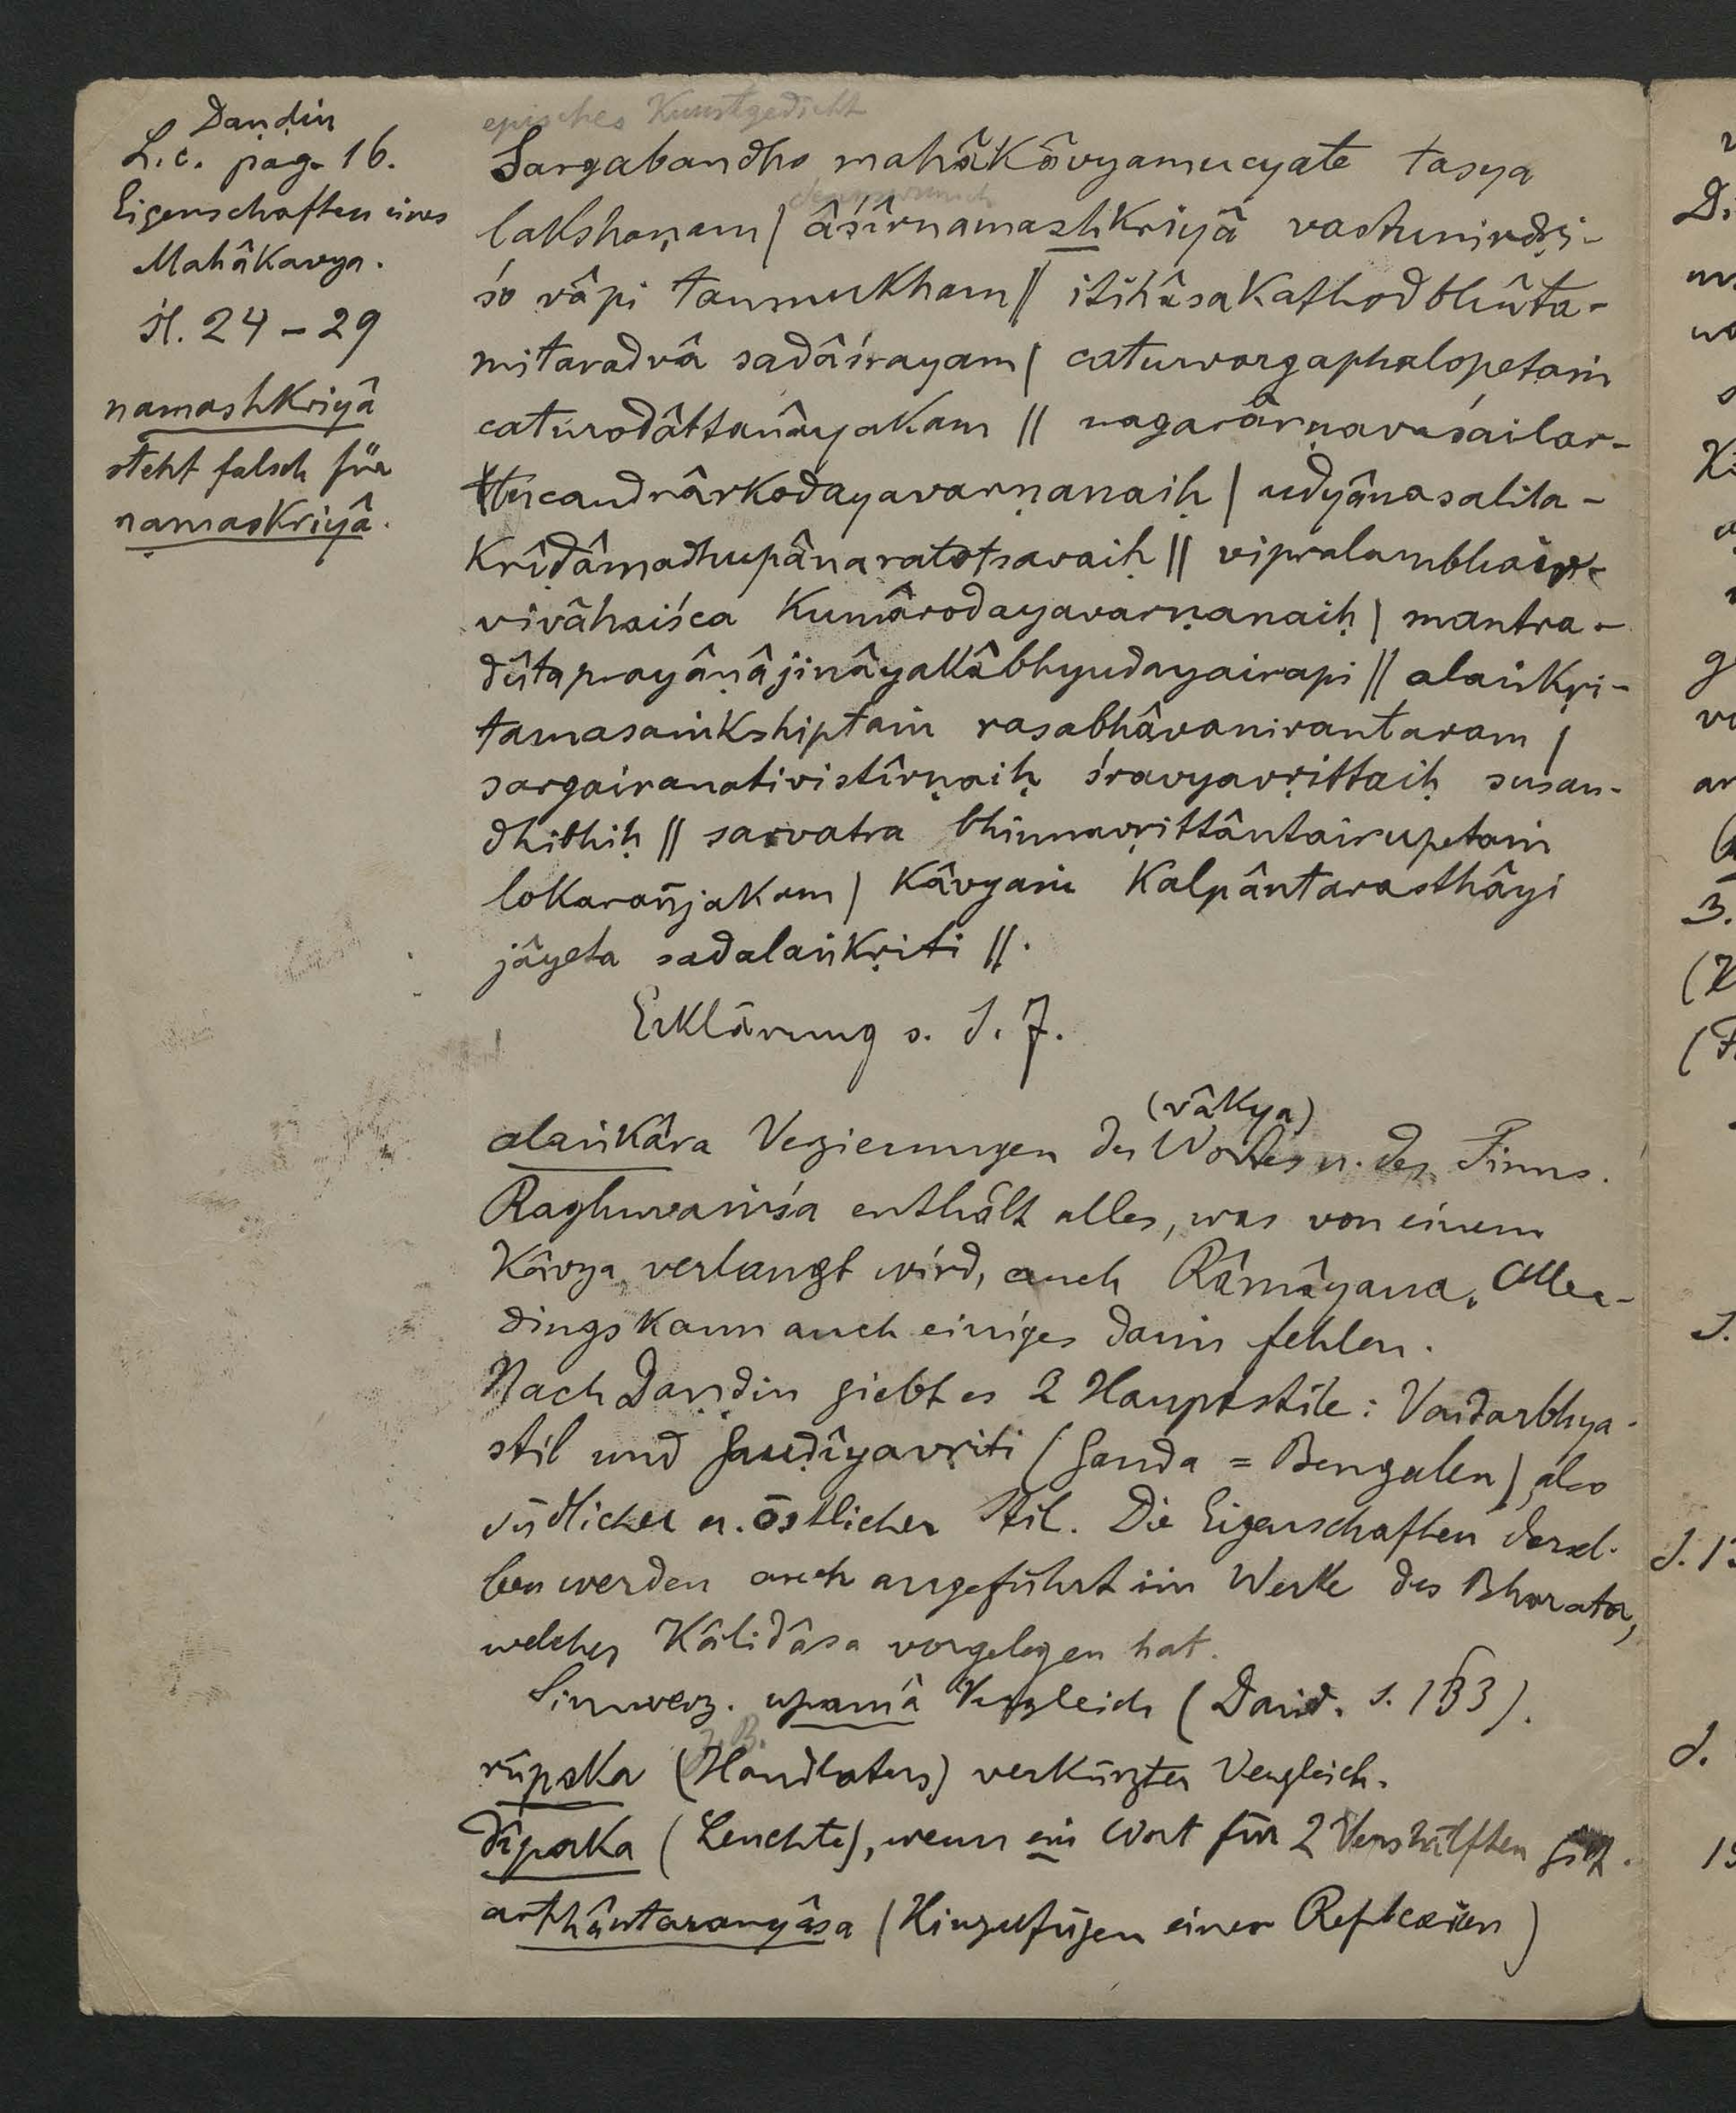 Daṇḍin
L. c. pag. 16.
Eigenschaften eines
Mahâkavya.
śl. 24 – 29
namashkriyâ
steht falsch für
namaskriyâ.
episches Kunstgedicht
Sargabandho mahâkâvyamucyate tasya
lakshaṇam | âśîrnamashkriyâ vastunirdṛi-
śo vâpi tanmukham || itihâsakathodbhûta-
mitaradvâ sadâśrayam | caturvargaphalopetaṁ
caturodâttanâyakam || nagarârṇavaśailar-
tucandrârkodayavarṇanaiḥ | udyânasalila-
krîḍâmadhupânaratotsavaiḥ || vipralambhair-
vivâhaiśca kumârodayavarṇanaiḥ | mantra-
dûtaprayâṇâjinâyakâbhyudayairapi || alaṅkṛi-
tamasaṁkshiptaṁ rasabhâvanirantaram |
sargairanativistîrṇaiḥ śravyavṛittaiḥ susan-
dhibhiḥ || sarvatra bhinnavṛittântairupetaṁ
lokarañjakam | kâvyaṁ kalpântarasthâyi
jâyeta sadalaṅkṛiti ||.
Erklärung s. S. 7.
(vâkya)
alaṅkâra Verzierungen des Wortes u. des Sinns.
Raghuvaṁśa enthält alles, was von einem
Kâvya verlangt wird, auch Râmâyana. Aller-
dings kann auch einiges darin fehlen.
Nach Daṇḍin giebt es 2 Hauptstile: Vaidarbhya-
stil und Gauḍîyavṛiti (Gauda = Bengalen), also
südlicher u. östlicher Stil. Die Eigenschaften dersel-
ben werden auch angeführt im Werke des Bharata,
welches Kâlidâsa vorgelegen hat.
Sinnverz. upamâ Vergleich (Daṇḍ. S. 153).
z. B.
rûpaka (Handlotus) verkürzter Vergleich.
dîpaka (Leuchte), wenn ein Wort für 2 Vershälften gilt.
arthântaranyâsa (Hinzufügen einer Reflexion)